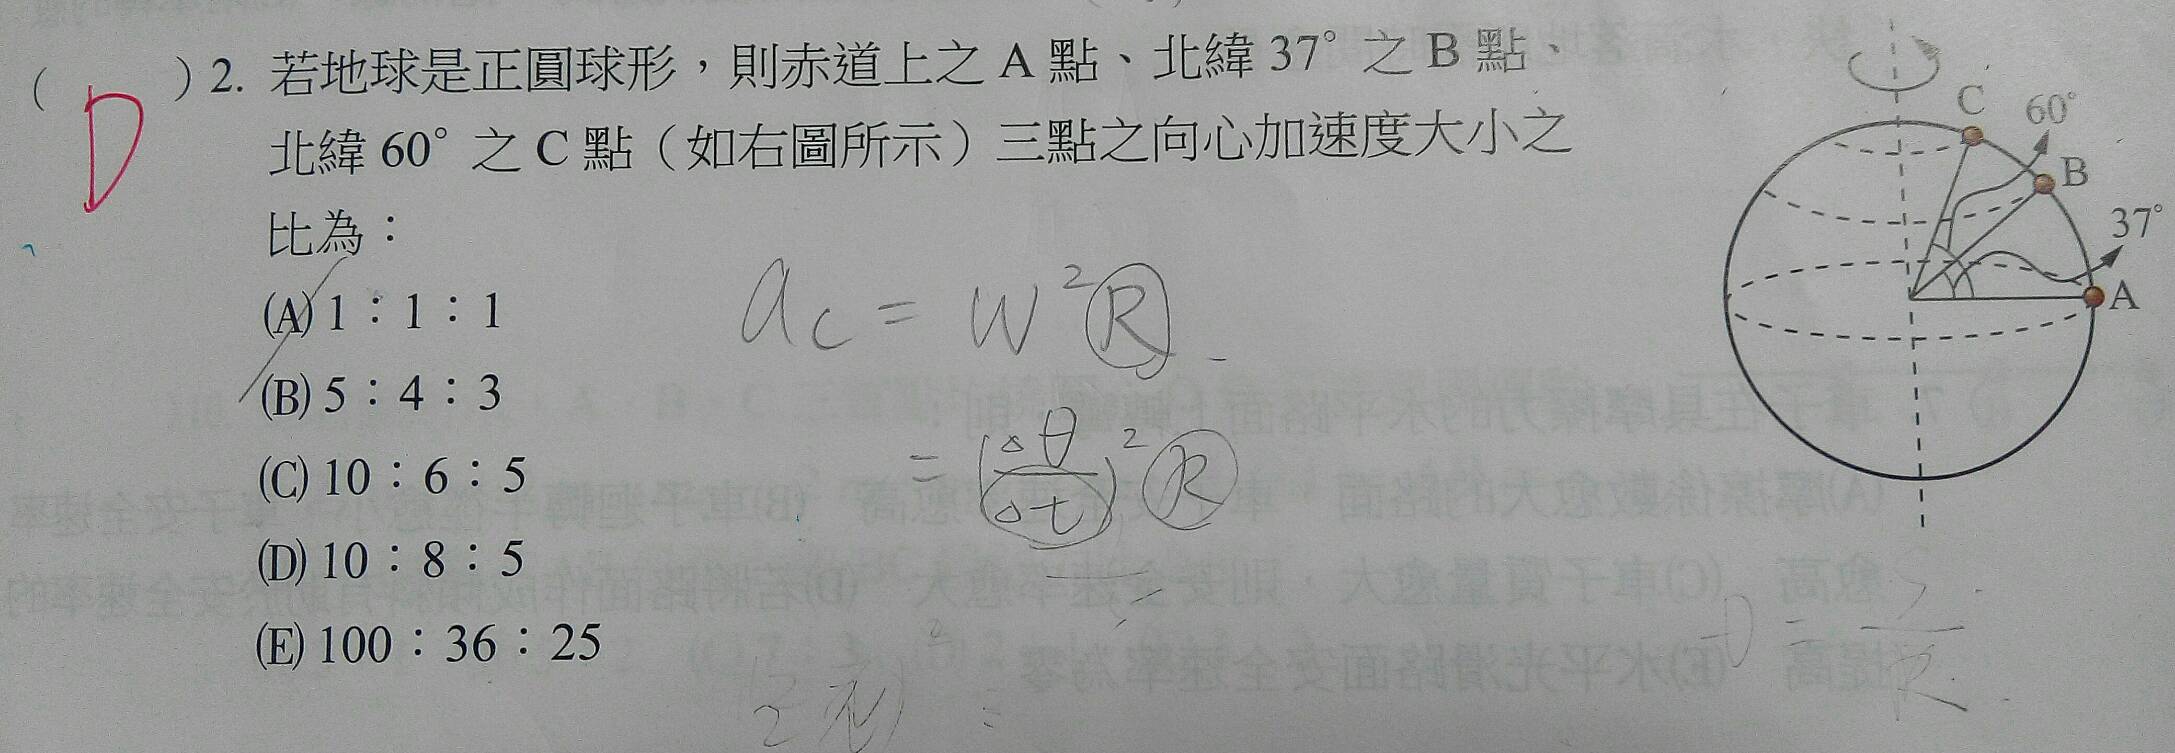 ( D ) 2. 若地球是正圓球形，則赤道上之 A 點、北緯 37° 之 B 點、
北緯 60° 之 C 點（如右圖所示）三點之向心加速度大小之
比為：
(A) 1：1：1
(B) 5：4：3
(C) 10：6：5
(D) 10：8：5
(E) 100：36：25
C
60°
B
37°
A
ac = w²R
= (△θ/△t)²R